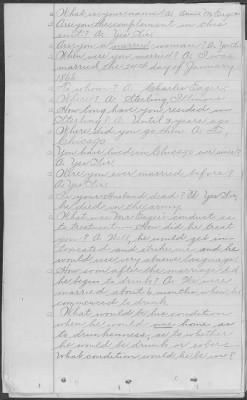 Q What is your name? A. Annie M. Eager
Q Are you the complainant in this
suit? A. Yes Sir.
Q Are you a married woman? A. Yes Sir
Q When were you married? A. I was
married the 24th day of January
1866
Q To whom? A. Charles Eager.
Q Where? A. Sterling Illinois
Q How long have you resided in
Sterling? A. Until 2 years ago
Q Where did you go then A. To
Chicago
Q You have lived in Chicago ever since?
A. Yes Sir.
Q Were you ever married before?
A. Yes Sir
Q Is your husband dead? A. Yes Sir,
he died in the army
Q What was Mr Eager's conduct as
to treatment. How did he treat
you? A. Well, he would get in-
toxicated and strike me and he
would use very abusive language
Q How soon after the marriage did
he begin to drink? A. We were
married about 6 months when he
commenced to drink
Q What would be his condition
when he would come home as
to drunkenness, as to whether
he would be drunk or sober.
What condition would he be in?